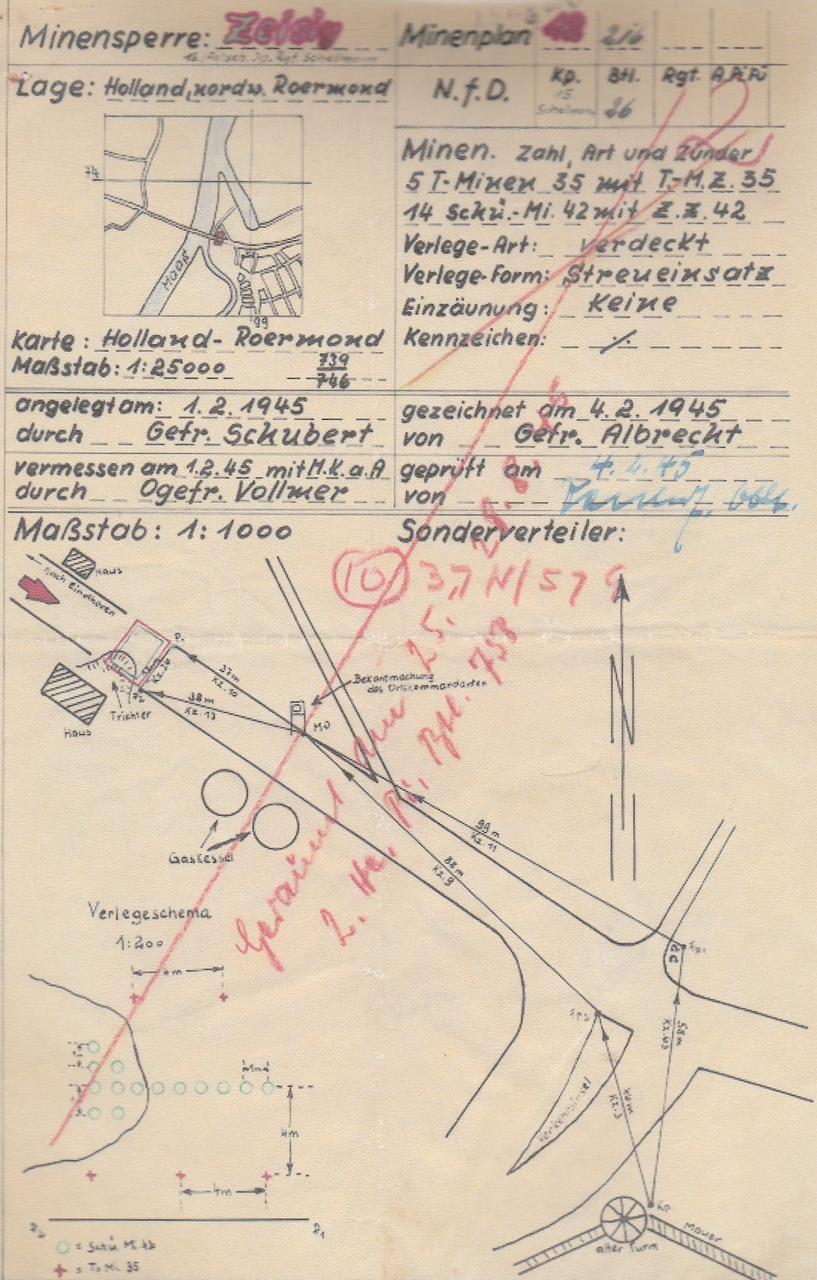 Minensperre: Zeisig
Minenplan 48 216
Lage: Holland, nordw. Roermond
N.f.D.
Kp. Btl. Rgt. A.Pi.Fü
15. 26
74
Maas
99
Minen. Zahl, Art und Zünder
5 T-Minen 35 mit T.-M.Z. 35
14 Schü.-Mi. 42 mit Z.Z. 42
Verlege-Art: verdeckt
Verlege-Form: Streueinsatz
Einzäunung: Keine
Kennzeichen:
Karte: Holland-Roermond
Maßstab: 1:25000
739
746
angelegt am: 1.2.1945
durch Gefr. Schubert
gezeichnet am 4.2.1945
von Gefr. Albrecht
vermessen am 1.2.45 mit M.K.a.A
durch Ogefr. Vollmer
geprüft am 4.2.45
von
Maßstab: 1:1000
Sonderverteiler:
Haus
nach Eindhoven
10 37 N/57
P1
37m
Kz.10
38m
Kz.13
P2
Trichter
Haus
Bekantmachung
des Ortskommandanten
MP
Gaskessel
99m
Kz.11
88m
Kz.9
Geräumt am 25.
2. Pi. Btl. 758
Verlegeschema
1:200
4m
4m
4m
58m
Kz.63
Kz.3
Verkehrsinsel
P2
P1
= Schü Mi 42
= T. Mi. 35
alter Turm
Mauer